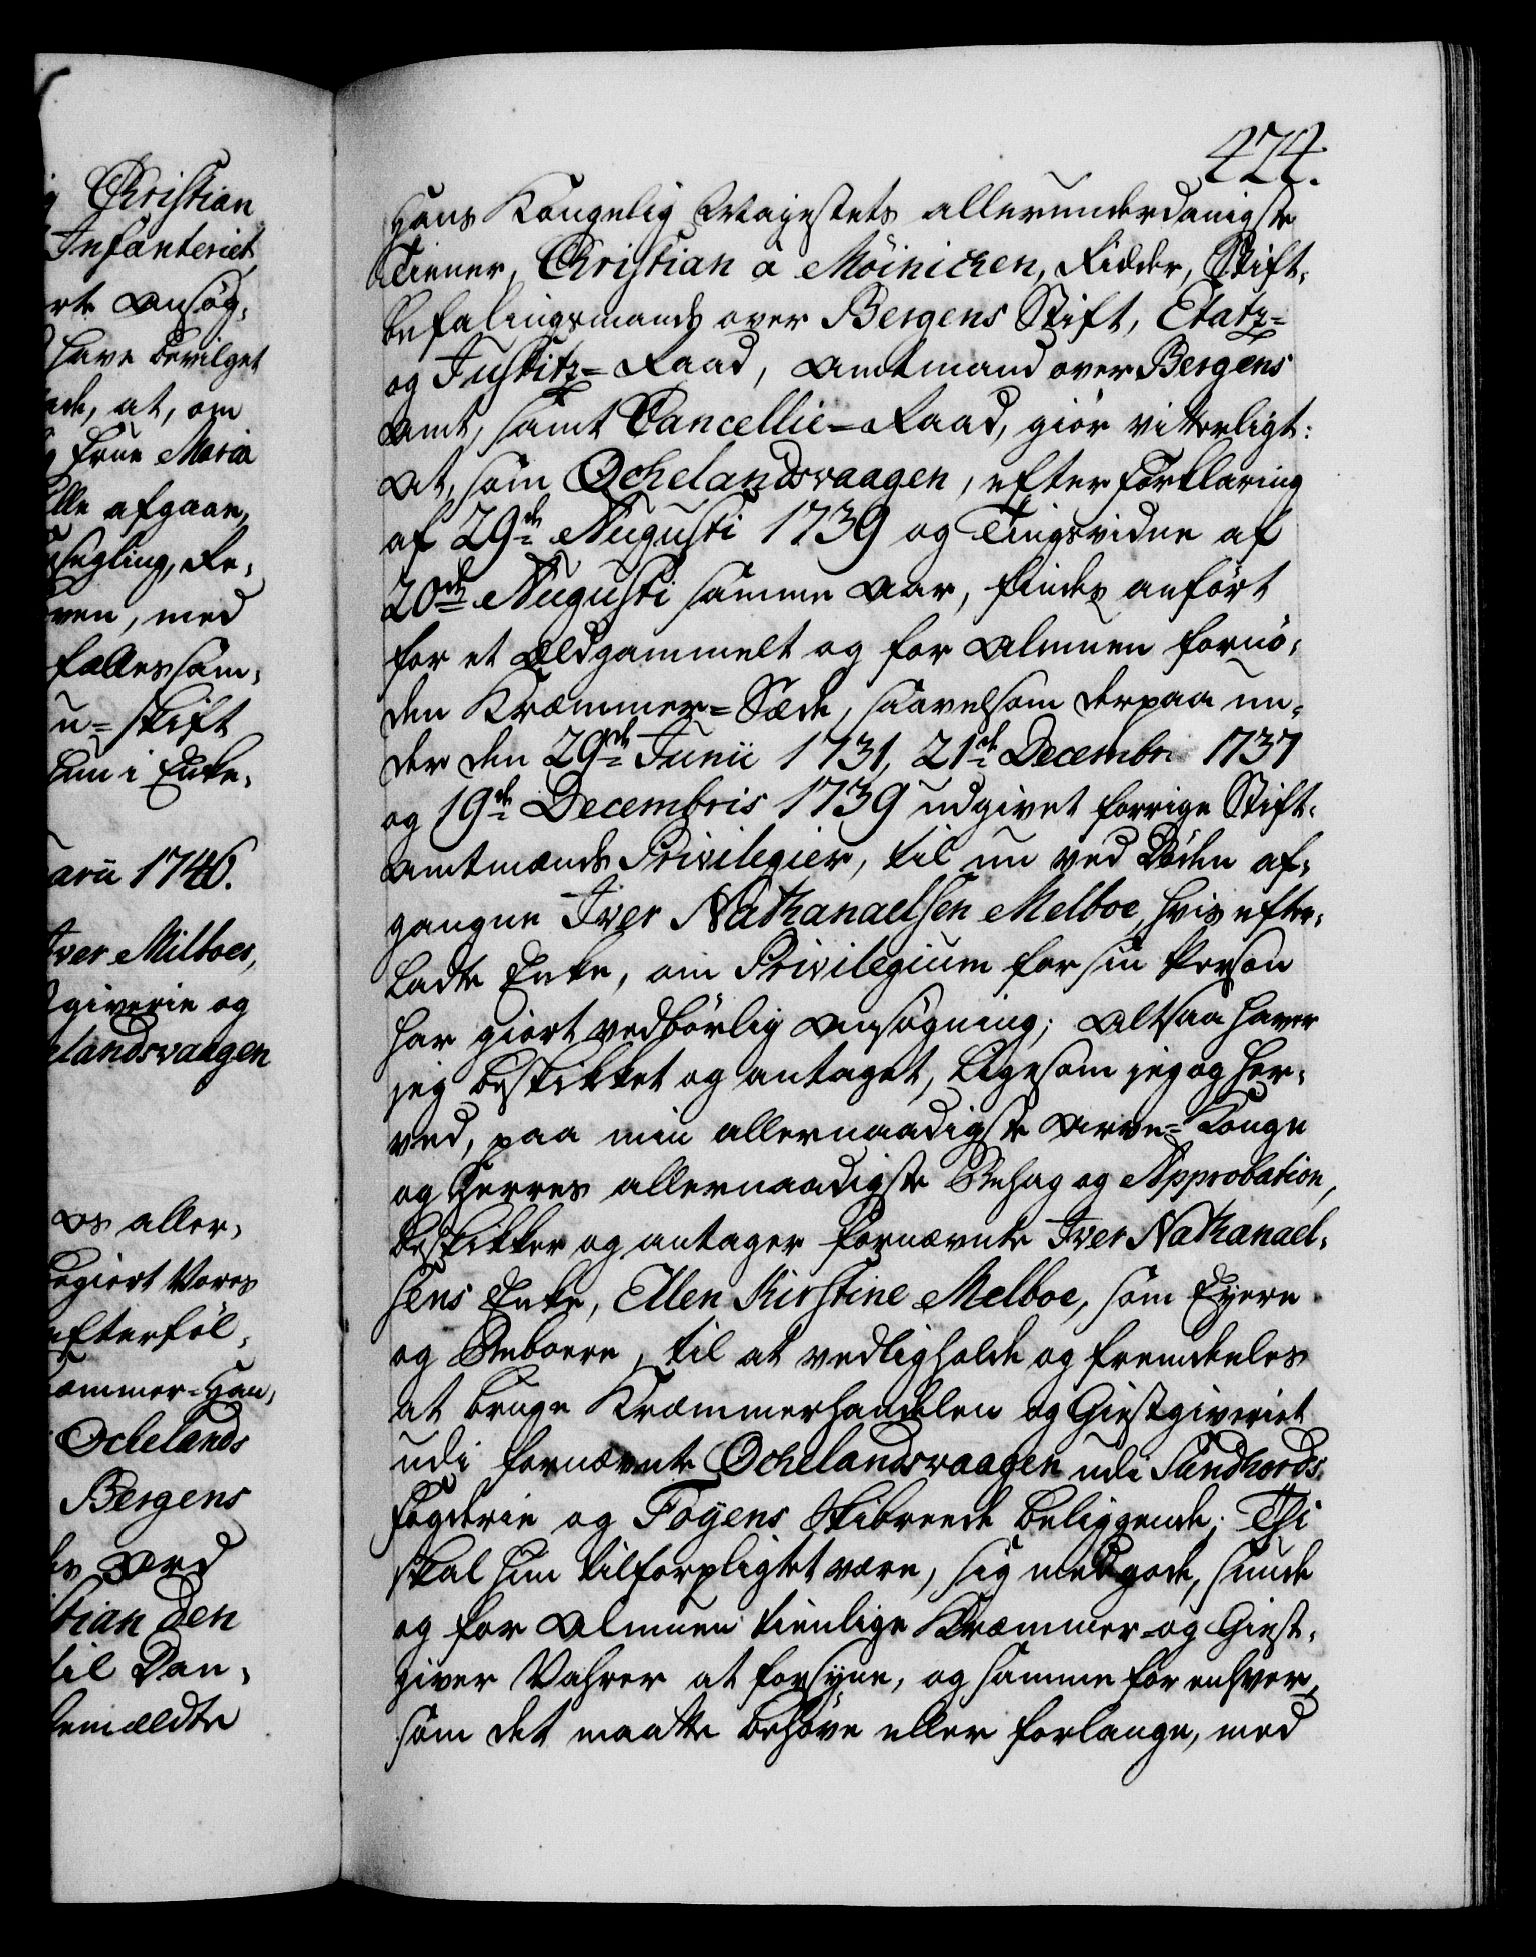 g Christian
Infanteriet
rte Ansøg,
have bevilget
ede, at, om
g Frue Maria
lle afgaae,
segling, Re,
ven, med
fælles sam,
u= skift
hun i Enke,
arii 1746.
Iver Milboes,
tgiverie og
elandsvaagen
Os aller,
begiert Vores
efterføl,
ræmmer=Han,
Ochelands
Bergens
es Ord
stian den
til Dan,
bemældte
474.
Hans Kongelig Mayestets allerunderdanigste
Tiener, Christian a Möinichen, Ridder, Stift,
befalingsmand over Bergens Stift, Etatz=
og Justitz=Raad, Amtmand over Bergens
Amt, samt Cancellie=Raad, giør vitterligt:
At, som Ochelandsvaagen, efter Forklaring
af 29de Augusti 1739 og Tingsvidne af
20de Augusti samme Aar, findes anført
for et Eldgammelt og for Almuen fornø,
den Kræmmer=Sæde, saavelsom derpaa un,
der den 29de Junii 1731, 21de Decembr. 1737
og 19de Decembris 1739 udgivet forrige Stift,
Amtmænds Privilegier, til nu ved Døden af,
gangne Iver Nathanaelsen Melboe, hvis efter,
ladte Enke, om Privilegium for sin Person
har giort vedbørlig Ansøgning; Altsaa haver
jeg beskikket og antaget, ligesom jeg og her,
ved, paa min allernaadigste Arve=Konge
og Herres allernaadigste Behag og Approbation,
beskikker og antager fornævnte Iver Nathanael,
sens Enke, Ellen Kirstine Melboe, som Eyere
og Beboere, til at vedligholde og fremdeles
at bruge Kræmmerhandelen og Giestgiveriet
udi fornævnte Ochelandsvaagen udi Sundhords
Fogderie og Foÿens Skibreede beliggende; Thi
skal hun tilforpligtet være, sig med gode, sunde
og for Almuen tienlige Kræmmer= og Giest,
giver Vahrer at forsyne, og samme for enhver,
som det maatte behøve eller forlange, med